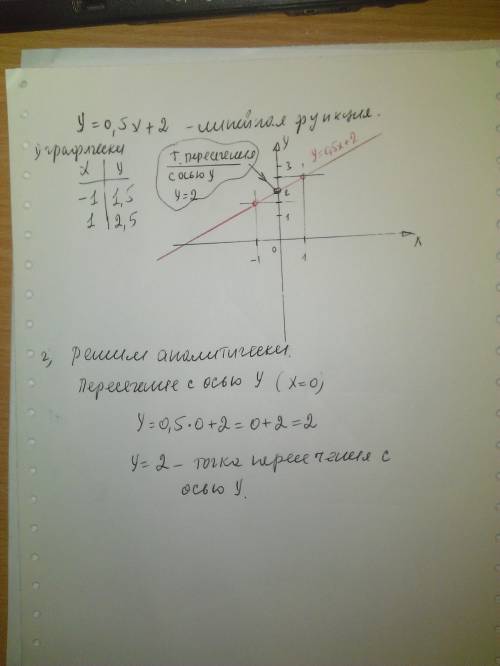 y=0,5x+2 - линейная функция.
1) графически
x y
-1 1,5
1 2,5
т. пересечения
с осью y
y=2
y
3
2
1
y=0,5x+2
-1 0 1 x
2) Решим аналитически.
Пересечение с осью y (x=0)
y=0,5·0+2=0+2=2
y=2 - точка пересечения с
осью y.